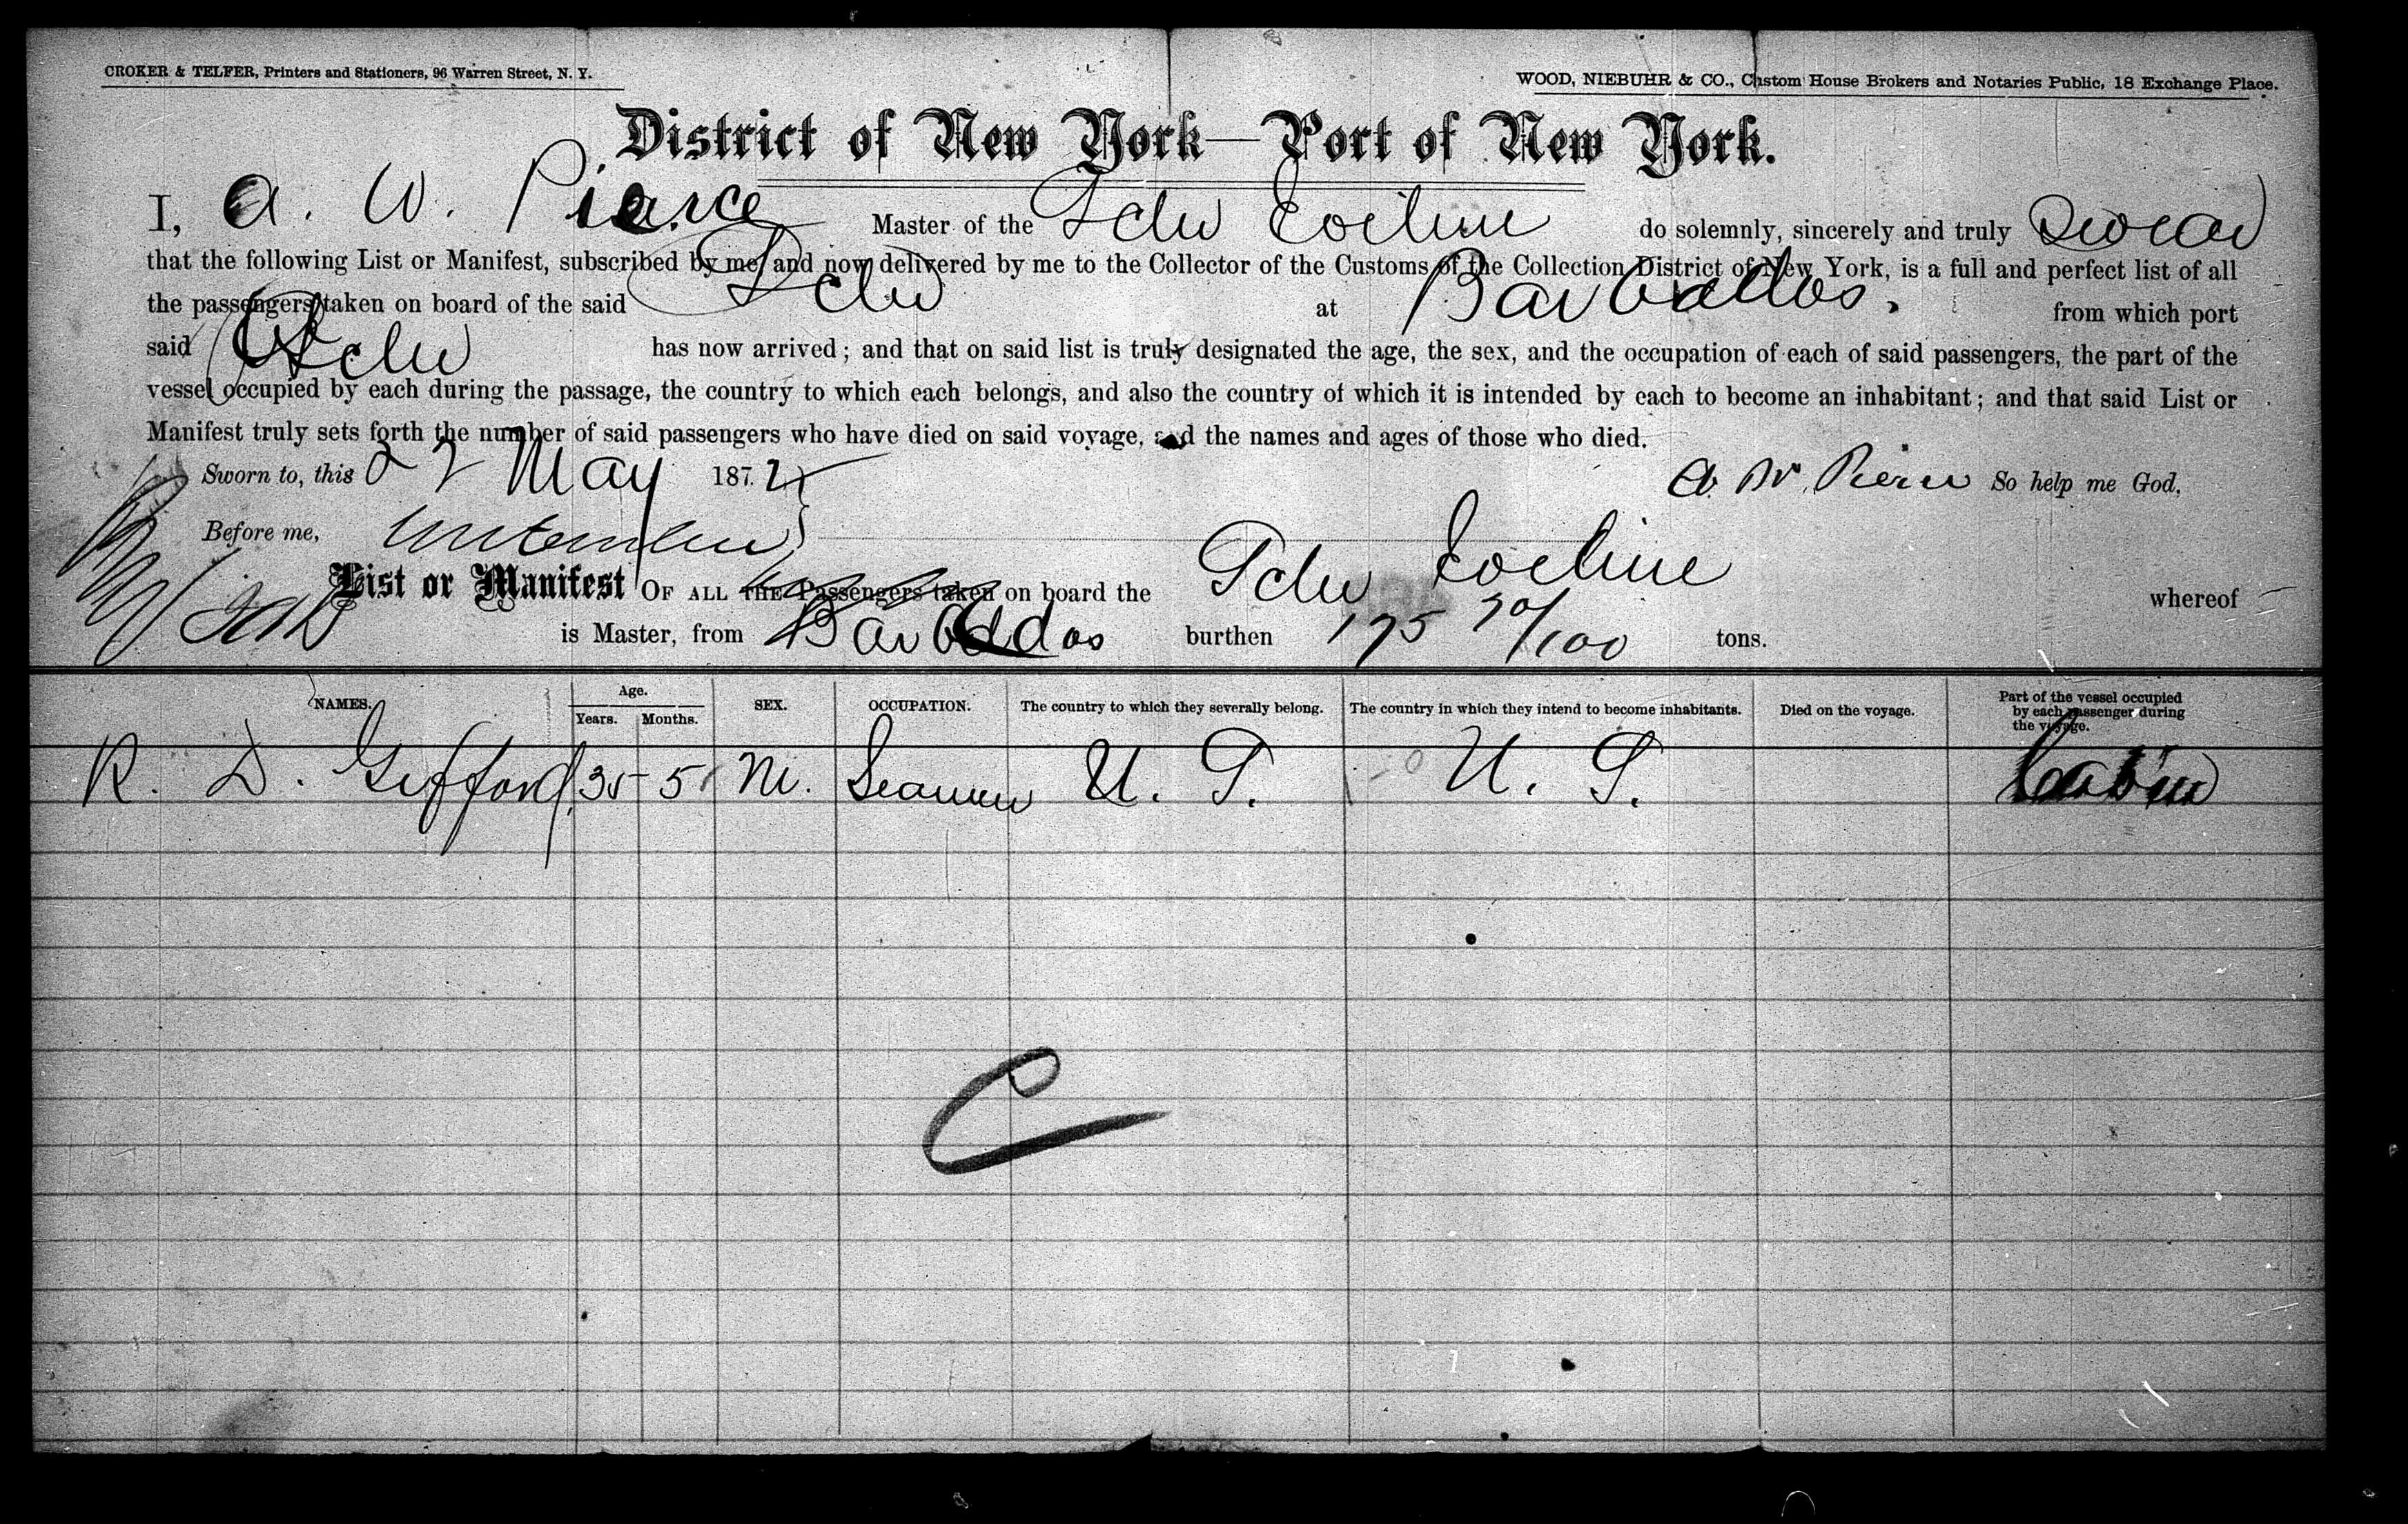 CROKER & TELFER, Printers and Stationers, 96 Warren Street, N. Y.
WOOD, NIEBUHR & CO., Custom House Brokers and Notaries Public, 18 Exchange Place.
District of New York—Port of New York.
I, A. W. Pierce Master of the Schr Eveline do solemnly, sincerely and truly Swear
that the following List or Manifest, subscribed by me, and now delivered by me to the Collector of the Customs of the Collection District of New York, is a full and perfect list of all
the passengers taken on board of the said Schr at Barbados. from which port
said Schr has now arrived; and that on said list is truly designated the age, the sex, and the occupation of each of said passengers, the part of the
vessel occupied by each during the passage, the country to which each belongs, and also the country of which it is intended by each to become an inhabitant; and that said List or
Manifest truly sets forth the number of said passengers who have died on said voyage, and the names and ages of those who died.
Sworn to, this 22 May 1872 A. W. Pierce So help me God.
Before me,
List or Manifest OF ALL THE Passengers taken on board the Schr Eveline whereof
is Master, from Barbados burthen 175 30/100 tons.
NAMES. Age. Years. Months. SEX. OCCUPATION. The country to which they severally belong. The country in which they intend to become inhabitants. Died on the voyage. Part of the vessel occupied by each passenger during the voyage.
R. D. Gifford 35 5 M. Seaman U. S. U. S. Cabin
C